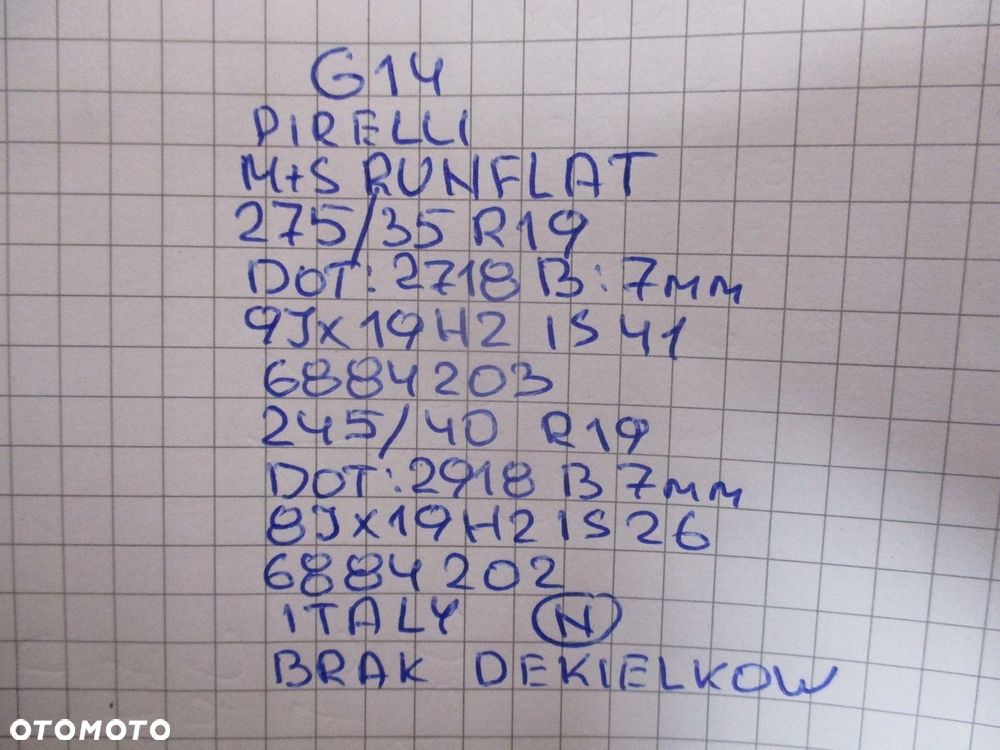 G14
PIRELLI
M+S RUNFLAT
275/35 R19
DOT: 2718 B: 7mm
9Jx19H2 IS 41
6884203
245/40 R19
DOT: 2918 B 7mm
8Jx19H2 IS 26
6884202
ITALY N
BRAK DEKIELKOW
OTOMOTO